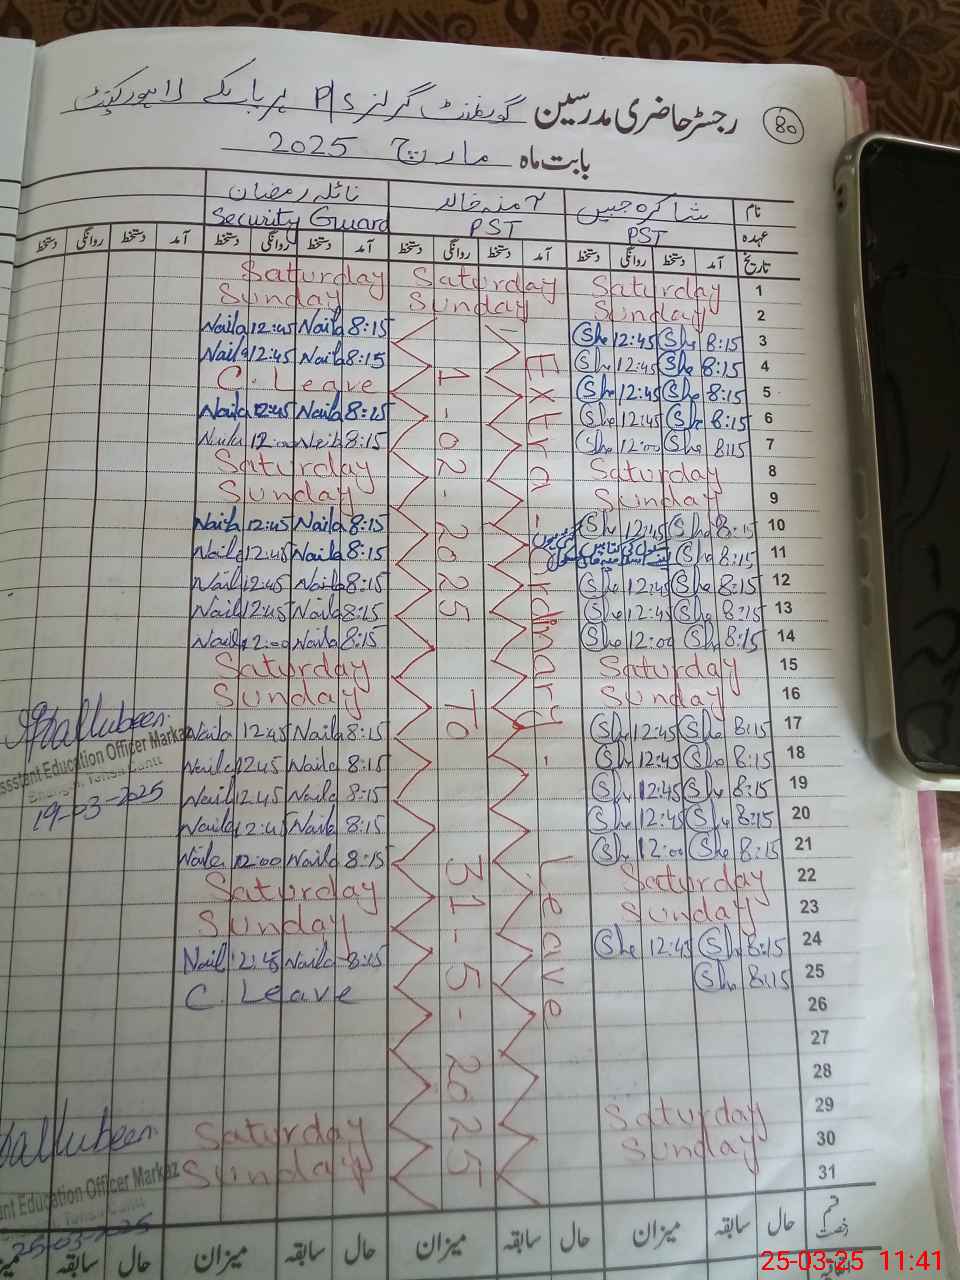 80
رجسٹر حاضری مدرسین گورنمنٹ گرلز P/S ہربنس کے لاہور کینٹ
بابت ماہ مارچ 2025
نام شاکرہ جبیں آمنہ خالد نائلہ رمضان
عہدہ PST PST Security Guard
تاریخ آمد دستخط روانگی دستخط آمد دستخط روانگی دستخط آمد دستخط روانگی دستخط آمد دستخط روانگی دستخط
1 Saturday Saturday Saturday
2 Sunday Sunday Sunday
3 8:15 She 12:45 She 8:15 Naila 12:45 Naila
4 8:15 She 12:45 She 8:15 Naila 12:45 Naila
5 8:15 She 12:45 She C. Leave
6 8:15 She 12:45 She 8:15 Naila 12:45 Naila
7 8:15 She 12:00 She 8:15 Naila 12:00 Naila
8 Saturday Saturday
9 Sunday Sunday
10 8:15 She 12:45 She 8:15 Naila 12:45 Naila
11 8:15 She 8:15 Naila 12:45 Naila
12 8:15 She 12:45 She 8:15 Naila 12:45 Naila
13 8:15 She 12:45 She 8:15 Naila 12:45 Naila
14 8:15 She 12:00 She 8:15 Naila 12:00 Naila
15 Saturday Saturday
16 Sunday Sunday
17 8:15 She 12:45 She 8:15 Naila 12:45 Naila
18 8:15 She 12:45 She 8:15 Naila 12:45 Naila
19 8:15 She 12:45 She 8:15 Naila 12:45 Naila
20 8:15 She 12:45 She 8:15 Naila 12:45 Naila
21 8:15 She 12:00 She 8:15 Naila 12:00 Naila
22 Saturday Saturday
23 Sunday Sunday
24 8:15 She 12:45 She 8:15 Naila 12:45 Naila
25 8:15 She C. Leave
26
27
28
29 Saturday Saturday
30 Sunday Sunday
31
Extra-Ordinary-Leave
1-02-2025 To 31-5-2025
Assistant Education Officer Markaz
19-03-2025
Education Officer Markaz
25-03-2025
قسم رخصت حال سابقہ میزان حال سابقہ میزان حال سابقہ میزان حال سابقہ
اتفاقیہ
25-03-25 11:41